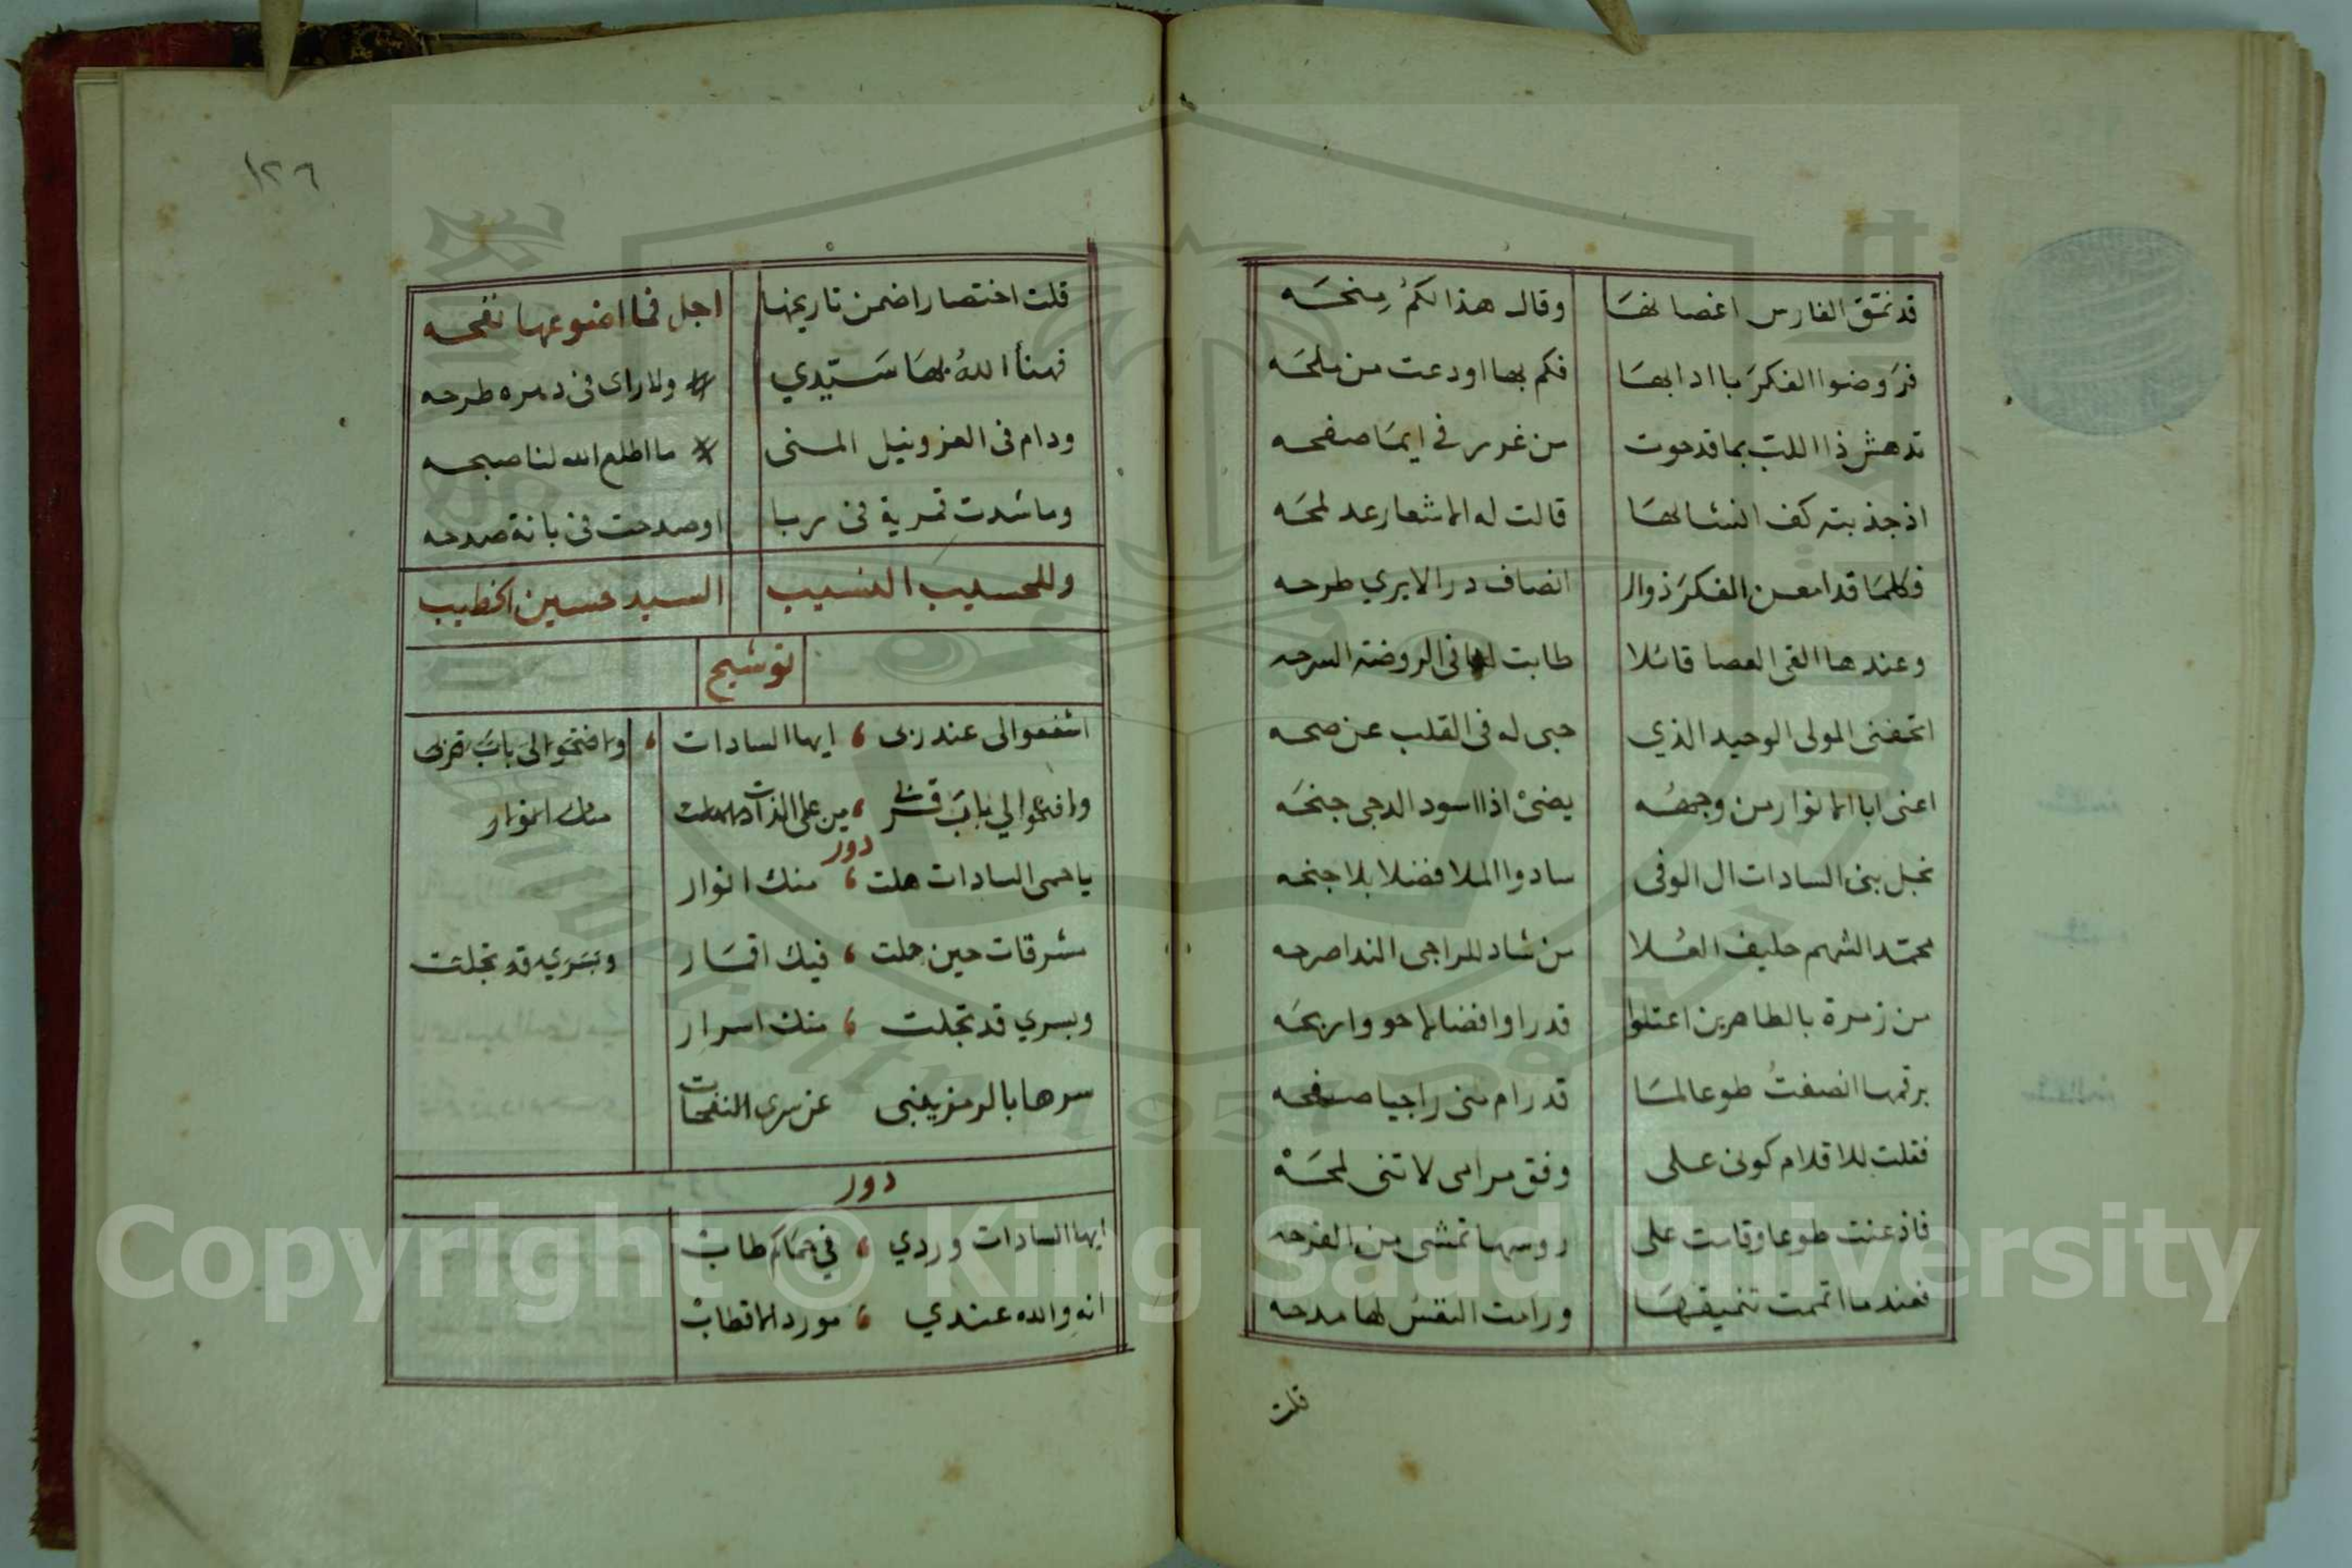 قد نمق الفارس اغصانها وقال هذا لكمُ مِنحَه
فرَوضوا الفكرَ باادابها فكم بها اودعت من ملحَه
تدهش ذا اللب بما قد حوت من غرر في ايمَا صفحه
اذ جذبته كف انشالها قالت له الاشعار عد لمحَه
فكلمَا قد امعن الفكرَ ذوال انصاف در الايري طرحه
وعندها القى العصا قائلا طابت لها فى الروضة السرحه
اتحفنى المولى الوحيد الذي حبى له فى القلب عن صحه
اعنى ابا الانوار من وجههُ يضئ اذا اسود الدجى جنحَه
نجل بنى السادات ال الوفى سادوا الملا فضلا بلا جنحه
محمّد الشهم حليف العُلا من شاد للراجى الندا صرحه
من زمرة بالطاهرين اعتلوا قدرا وافضالا حووا ربحَه
برقمها انصفتُ طوعا لمَا قد رام منى راجيا صفحه
فقلت للاقلام كونى على وفق مرامى لا تنى لمحَهْ
فاذعنت طوعا وقامت على روسها تمشى من الفرحه
فعندما اتممت تنميقهَا ورامت النفسُ لها مدحه
قلت
١٢٦
قلت اختصارا ضمن تاريخها اجل فما اضوعها نفحه
فهنأ اللهُ بهَا سَيّدي ولا راى فى دهره طرحه
ودام فى العز ونيل المنى ما اطلع الله لنا صبحه
وما شدت قمرية فى ربا اوصدحت فى بانة صدحه
وللحسيب النسيب السيد حسين الخطيب
توشيح
اشفعوا لى عند ربى ، ايها السادات ، وافتحوا لى بابَ قربى
وافتحوا لي بابَ قربي ، من على الذات منك انوار
دور
يا حمى السادات هلت ، منك انوار
مشرقات حين حلت ، فيك اقمَار وبسَري قد تجلت
وبسري قد تجلت ، منك اسرار
سرها بالرمز يغنى عن سرى النفحات
دور
ايها السادات وردي ، في حمَاكم طابْ
انه والله عندي ، مورد الاقطابْ
Copyright © King Saud University
1957